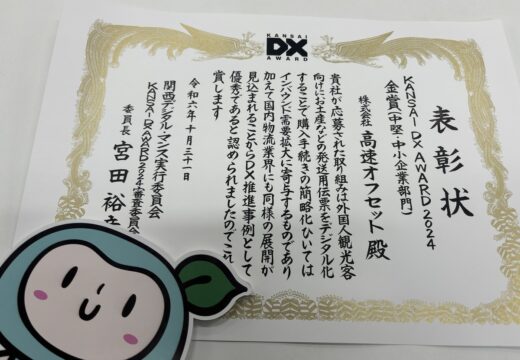 KANSAI
DX
AWARD
表彰状
KANSAI DX AWARD 2024
金賞(中堅・中小企業部門)
株式会社 高速オフセット 殿
貴社が応募された取り組みは外国人観光客
向けにお土産などの発送用伝票をデジタル化
することで購入手続きの簡略化ひいては
インバウンド需要拡大に寄与するものであり
加えて国内物流業界にも同様の展開が
見込まれることからDX推進事例として
優秀であると認められましたのでこれ
賞します
令和六年十月三十一日
関西デジタルマンス実行委員会
KANSAI DX AWARD 2024審査委員会
委員長 宮田 裕